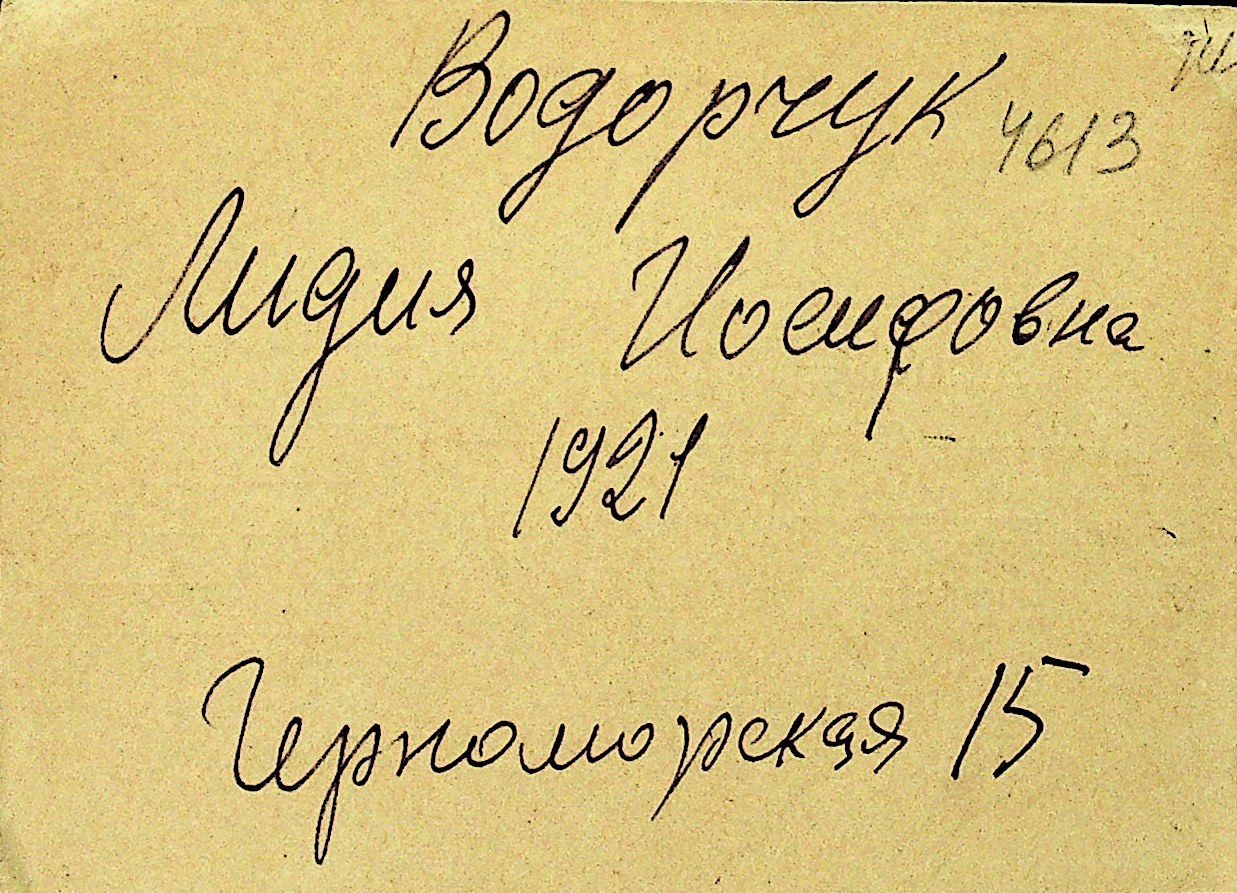 Водорчук 4613
Лидия Иосифовна
1921
Черноморская 15